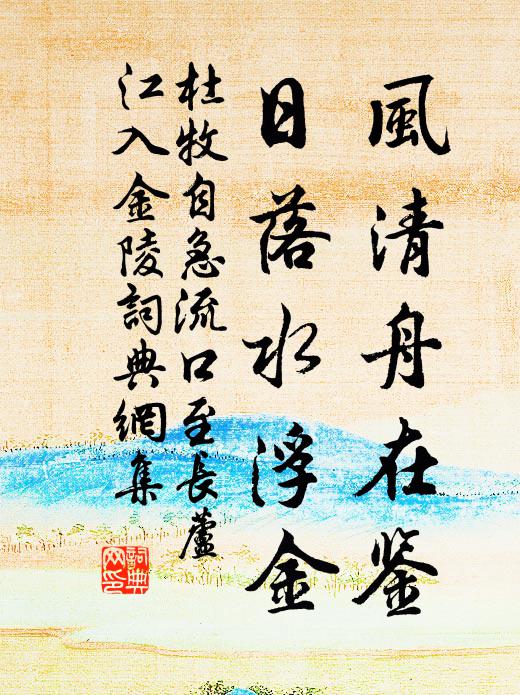 風清舟在鉴
日落水浮金
杜牧自急流口至長蘆
江入金陵詞典網集
詞典
网印